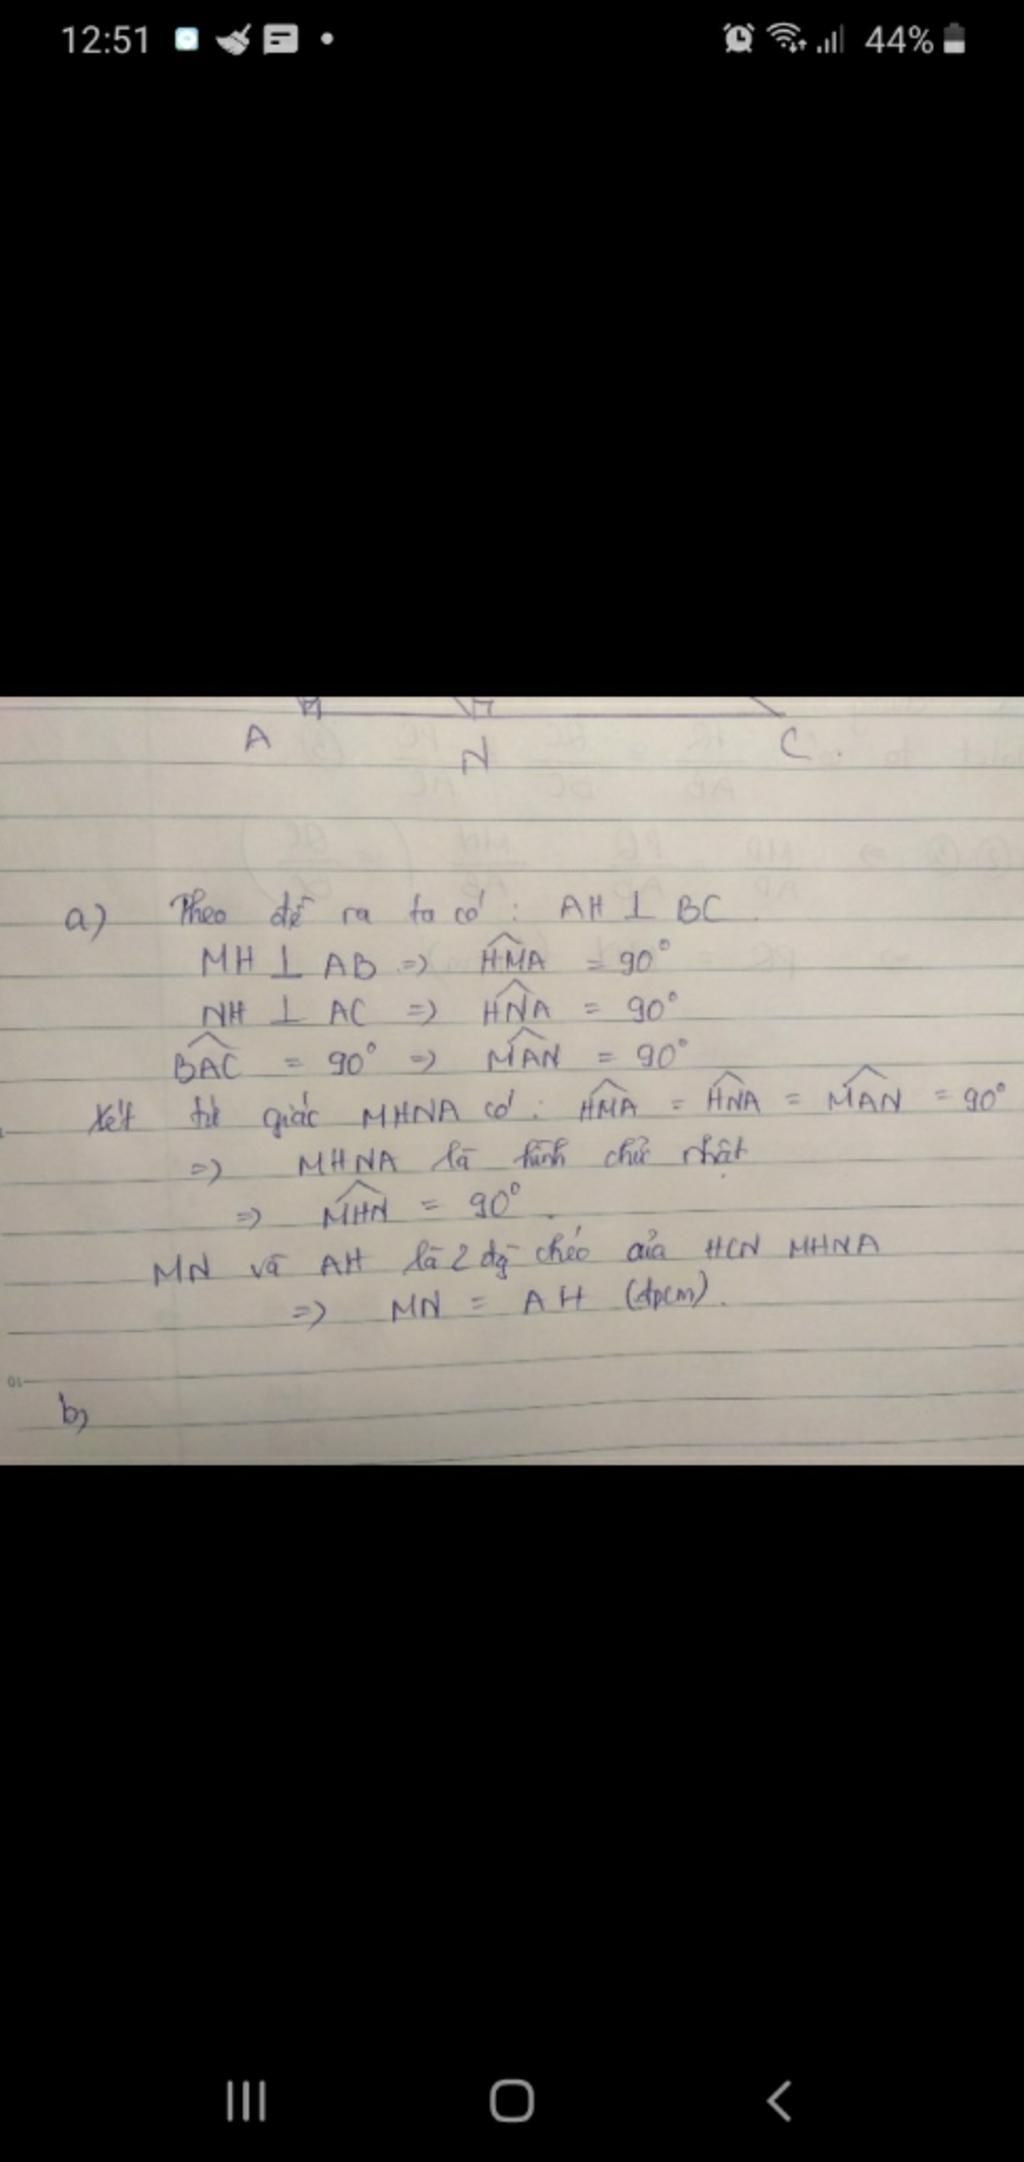 12:51
44%
A
N
C
a) Theo đề ra ta có : AH ⊥ BC
MH ⊥ AB => HMA = 90°
NH ⊥ AC => HNA = 90°
BAC = 90° => MAN = 90°
Xét tứ giác MHNA có : HMA = HNA = MAN = 90°
=> MHNA là hình chữ nhật
=> MHN = 90°.
MN và AH là 2 đg chéo của HCN MHNA
=> MN = AH (đpcm).
b)